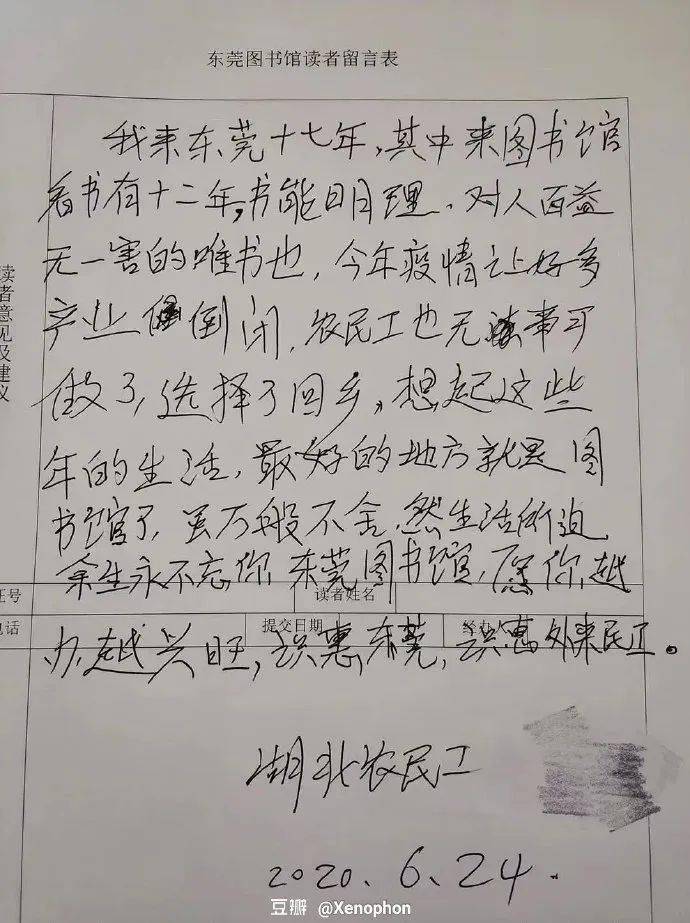 东莞图书馆读者留言表
我来东莞十七年，其中来图书馆
看书有十二年，书能明理，对人百益
无一害的唯书也，今年疫情让好多
产业倒闭，农民工也无事可
做了，选择了回乡，想起这些
年的生活，最好的地方就是图
书馆了，虽万般不舍，然生活所迫
余生永不忘你，东莞图书馆，愿你越
办越兴旺，识惠东莞，识惠外来民工。
读者意见及建议
证号
读者姓名
电话
提交日期
经办人
湖北农民工
2020.6.24.
豆瓣 @Xenophon